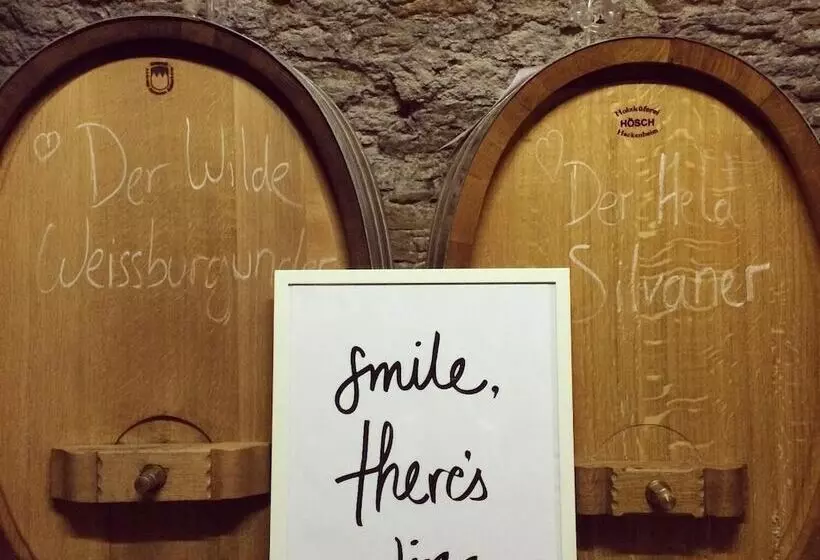 Der Wilde
Weissburgunder
Holzküferei
HÖSCH
Hackenheim
Der Held
Silvaner
smile,
there's